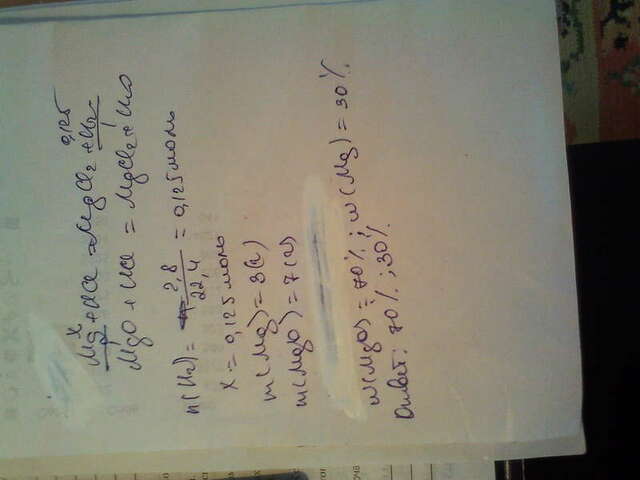 x 0,125
Mg + HCl = MgCl₂ + H₂
1 1
MgO + HCl = MgCl₂ + H₂O
n(H₂) = 2,8/22,4 = 0,125 моль
x = 0,125 моль
m(Mg) = 3(г)
m(MgO) = 7(г)
w(MgO) = 70%; w(Mg) = 30%
Ответ: 70%; 30%